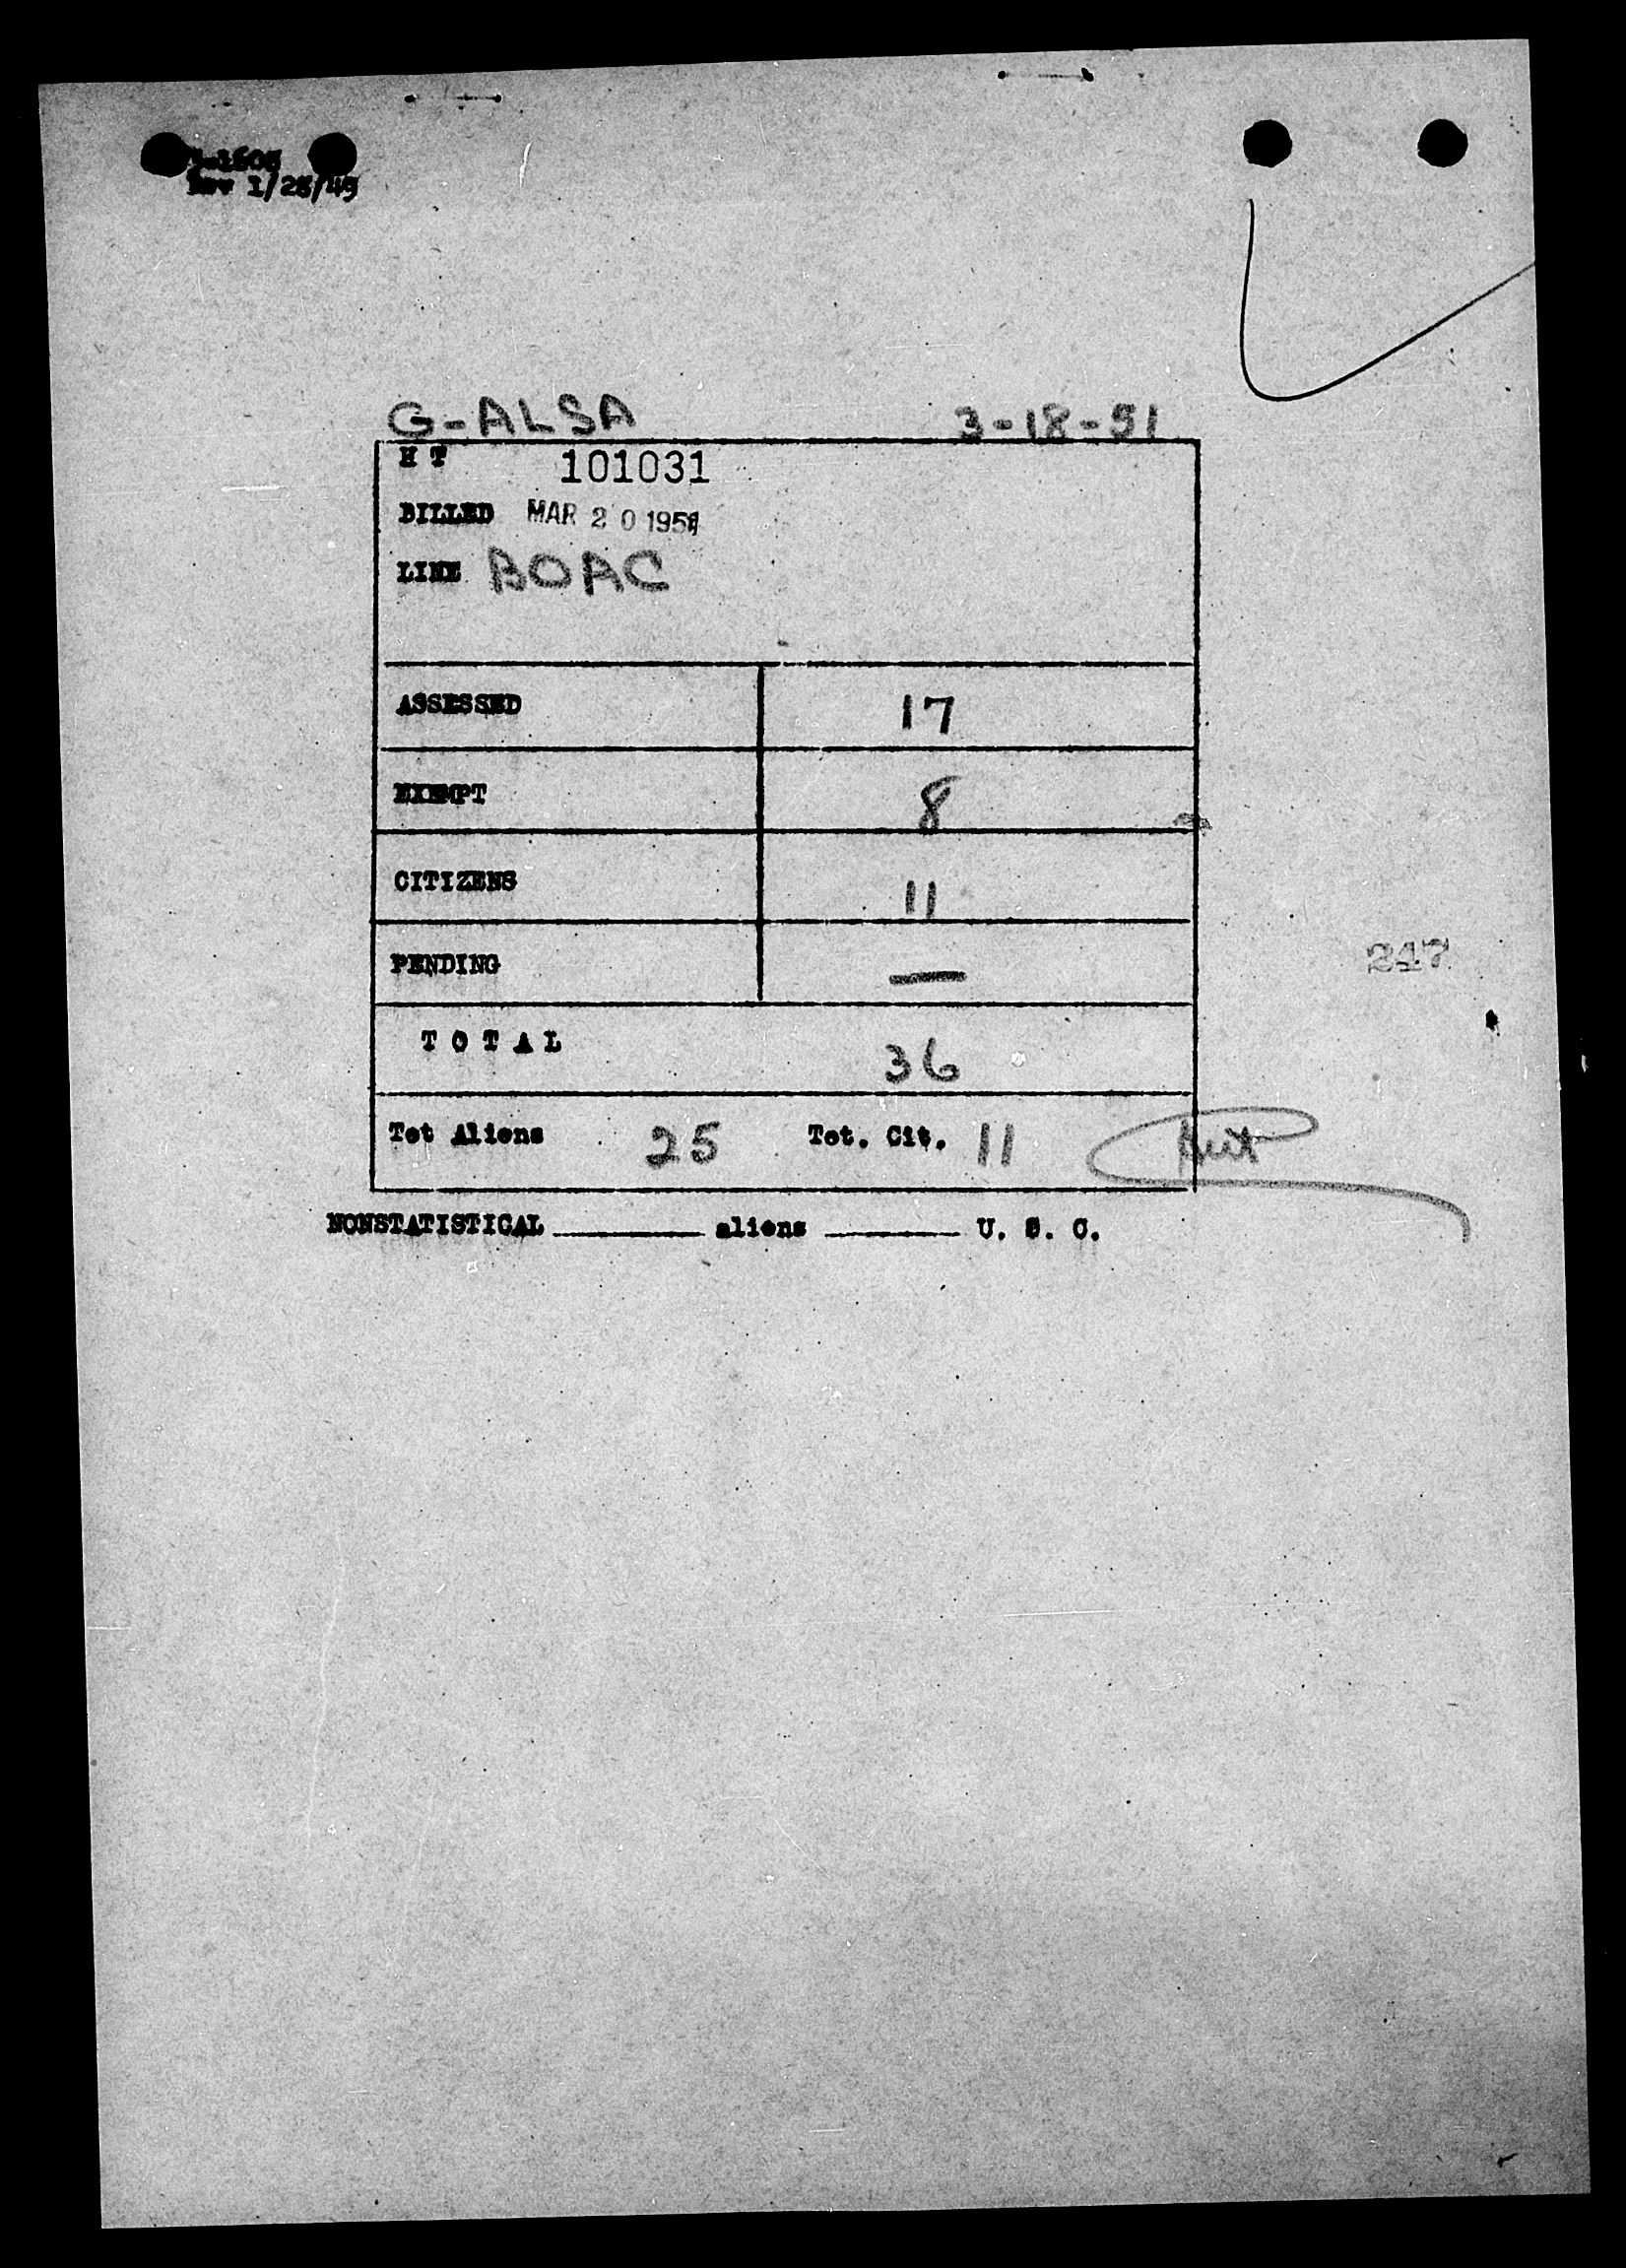 Rev 1/28/49
G-ALSA 3-18-51
H T 101031
BILLED MAR 20 1951
LINE BOAC
ASSESSED 17
EXEMPT 8
CITIZENS 11
PENDING —
247
TOTAL 36
Tot Aliens 25 Tot. Cit. 11
NONSTATISTICAL ______ aliens ______ U. S. C.